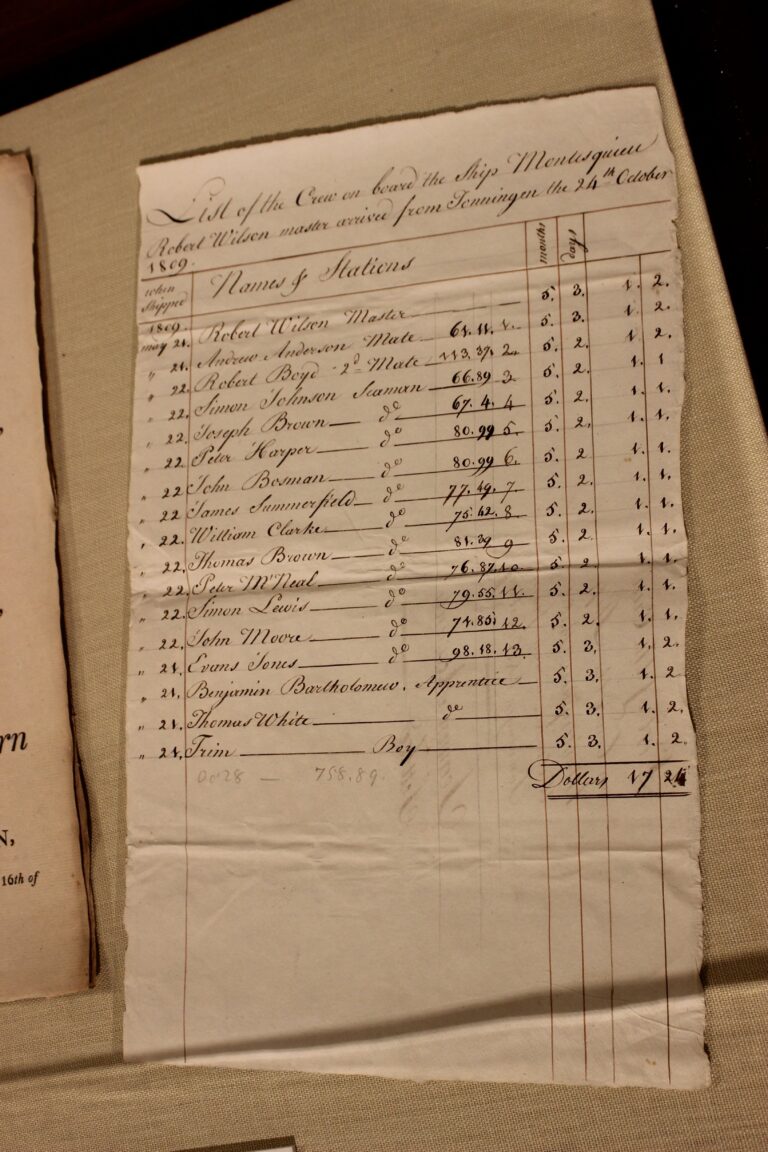 List of the Crew on board the Ship Montesquieu
Robert Wilson master arrived from Tonningen the 24th October
1809.
when Shipped Names & Stations months days
1809.
may 21. Robert Wilson Master 5. 3. 1. 2.
" 21. Andrew Anderson Mate 61.11. 1. 5. 3. 1. 2.
" 22. Robert Boyd 2d Mate 113.37. 2 5. 2. 1. 2.
" 22. Simon Johnson Seaman 66.89 3 5. 2. 1. 1
" 22. Joseph Brown do 67. 4. 4 5. 2. 1. 1.
" 22. Peter Harper do 80.99 5. 5. 2. 1. 1.
" 22 John Bosman do 80.99 6. 5. 2 1. 1.
" 22 James Summerfield do 77.49. 7 5. 2. 1. 1.
" 22. William Clarke do 75.42. 8 5. 2. 1. 1.
" 22. Thomas Brown do 81.39 9 5. 2. 1. 1.
" 22. Peter McNeal do 76.87.10 5. 2 1. 1.
" 22. Simon Lewis do 79.55. 11. 5. 2. 1. 1.
" 22. John Moore do 74.85. 12. 5. 2. 1. 1.
" 21. Evans Jones do 98.18. 13. 5. 3. 1. 2.
" 21. Benjamin Bartholomew. Apprentice 5. 3. 1. 2
" 21. Thomas White do 5. 3. 1. 2.
" 21. Trim Boy 5. 3. 1. 2.
758.89.
Dollars 17 24
rn
N,
16th of